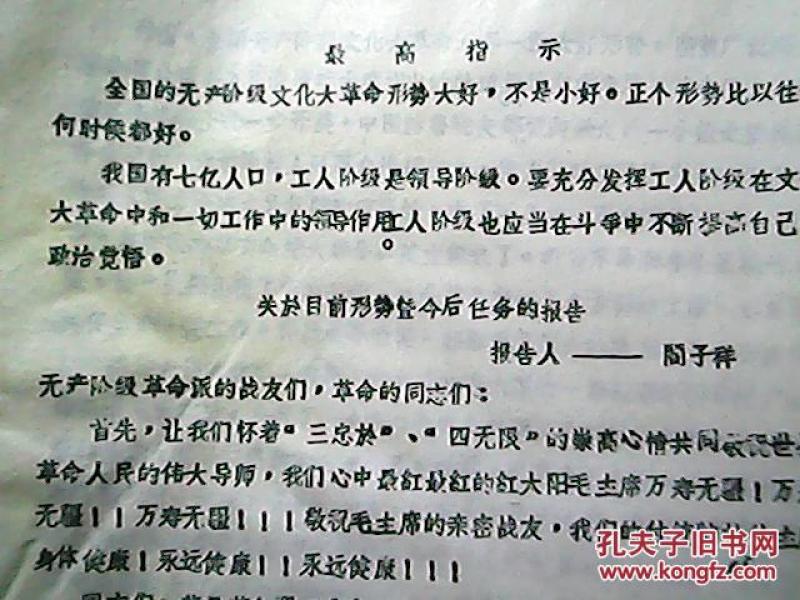 最高指示
全国的无产阶级文化大革命形势大好，不是小好。正个形势比以往
何时候都好。
我国有七亿人口，工人阶级是领导阶级。要充分发挥工人阶级在文
大革命中和一切工作中的领导作用。工人阶级也应当在斗争中不断提高自己
政治觉悟。
关於目前形势暨今后任务的报告
报告人——閻子祥
无产阶级革命派的战友们，革命的同志们：
首先，让我们怀着“三忠於”、“四无限”的崇高心情共同敬祝世
革命人民的伟大导师，我们心中最红最红的红太阳毛主席万寿无疆！万
无疆！！万寿无疆！！！敬祝毛主席的亲密战友，我们的
身体健康！永远健康！！永远健康！！！
同志们
孔夫子旧书网
www.kongfz.com